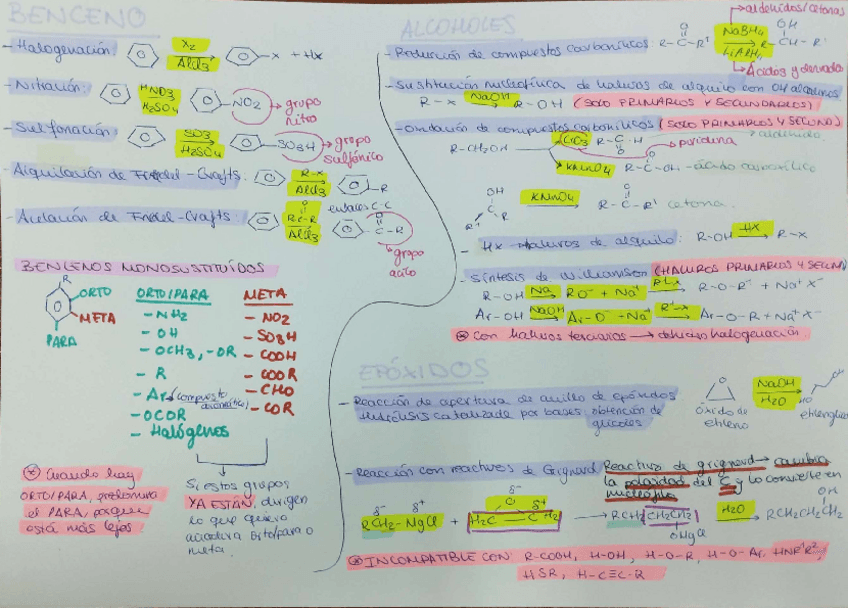 BENCENO
- Halogenación: X₂ AlCl₃ X + HX
- Nitración: HNO₃ H₂SO₄ NO₂ → grupo nitro
- Sulfonación: SO₃ H₂SO₄ SO₃H → grupo sulfónico
- Alquilación de Friedel-Crafts: R-X AlCl₃ R
enlaces C-C
- Acilación de Friedel-Crafts: O R-C-R AlCl₃ O C-R
grupo acilo
BENCENOS MONOSUSTITUÍDOS
R
ORTO
META
PARA
ORTO/PARA
- NH₂
- OH
- OCH₃, -OR
- R
- Ar (compuesto aromático)
- OCOR
- Halógenos
META
- NO₂
- SO₃H
- COOH
- COOR
- CHO
- COR
* Cuando hay
ORTO/PARA, predomina
el PARA, porque
está más lejos
Si estos grupos
YA ESTÁN, dirigen
lo que quiero
a orto/para o
meta.
ALCOHOLES
→ aldehídos/cetonas
- Reducción de compuestos carbonílicos: R-C-R' O NaBH₄ LiAlH₄ OH R-CH-R'
→ Ácidos y derivados
- Sustitución nucleofílica de haluros de alquilo con OH alcalinos
R-X NaOH R-OH (SOLO PRIMARIOS Y SECUNDARIOS)
- Oxidación de compuestos carbonílicos (SOLO PRIMARIOS Y SECUND)
R-CH₂OH CrO₃ O R-C-H aldehído
piridina
KMnO₄ O R-C-OH - ácido carboxílico
OH C R R' KMnO₄ O R-C-R' cetona
- HX → haluros de alquilo: R-OH HX R-X
- Síntesis de Williamson (HALUROS PRIMARIOS Y SECUND)
R-OH Na RO⁻ + Na⁺ R'-X R-O-R' + Na⁺X⁻
Ar-OH NaOH Ar-O⁻ + Na⁺ R'-X Ar-O-R + Na⁺X⁻
* Con haluros terciarios → deshidrohalogenación
EPÓXIDOS
- Reacción de apertura de anillo de epóxidos
Hidrólisis catalizada por bases: obtención de
glicoles
O
óxido de
etileno
NaOH
H₂O
HO
etilenglicol
- Reacción con reactivos de Grignard Reactivo de grignard → cambia
la polaridad del C y lo convierte en
nucleófilo
δ⁻ δ⁺ RCH₂-MgCl + δ⁻ O δ⁺ H₂C CH₂ → RCH₂CH₂CH₂ OMgCl H₂O OH RCH₂CH₂CH₂
* INCOMPATIBLE CON: R-COOH, H-OH, H-O-R, H-O-Ar, HNR'R²,
HSR, H-C≡C-R